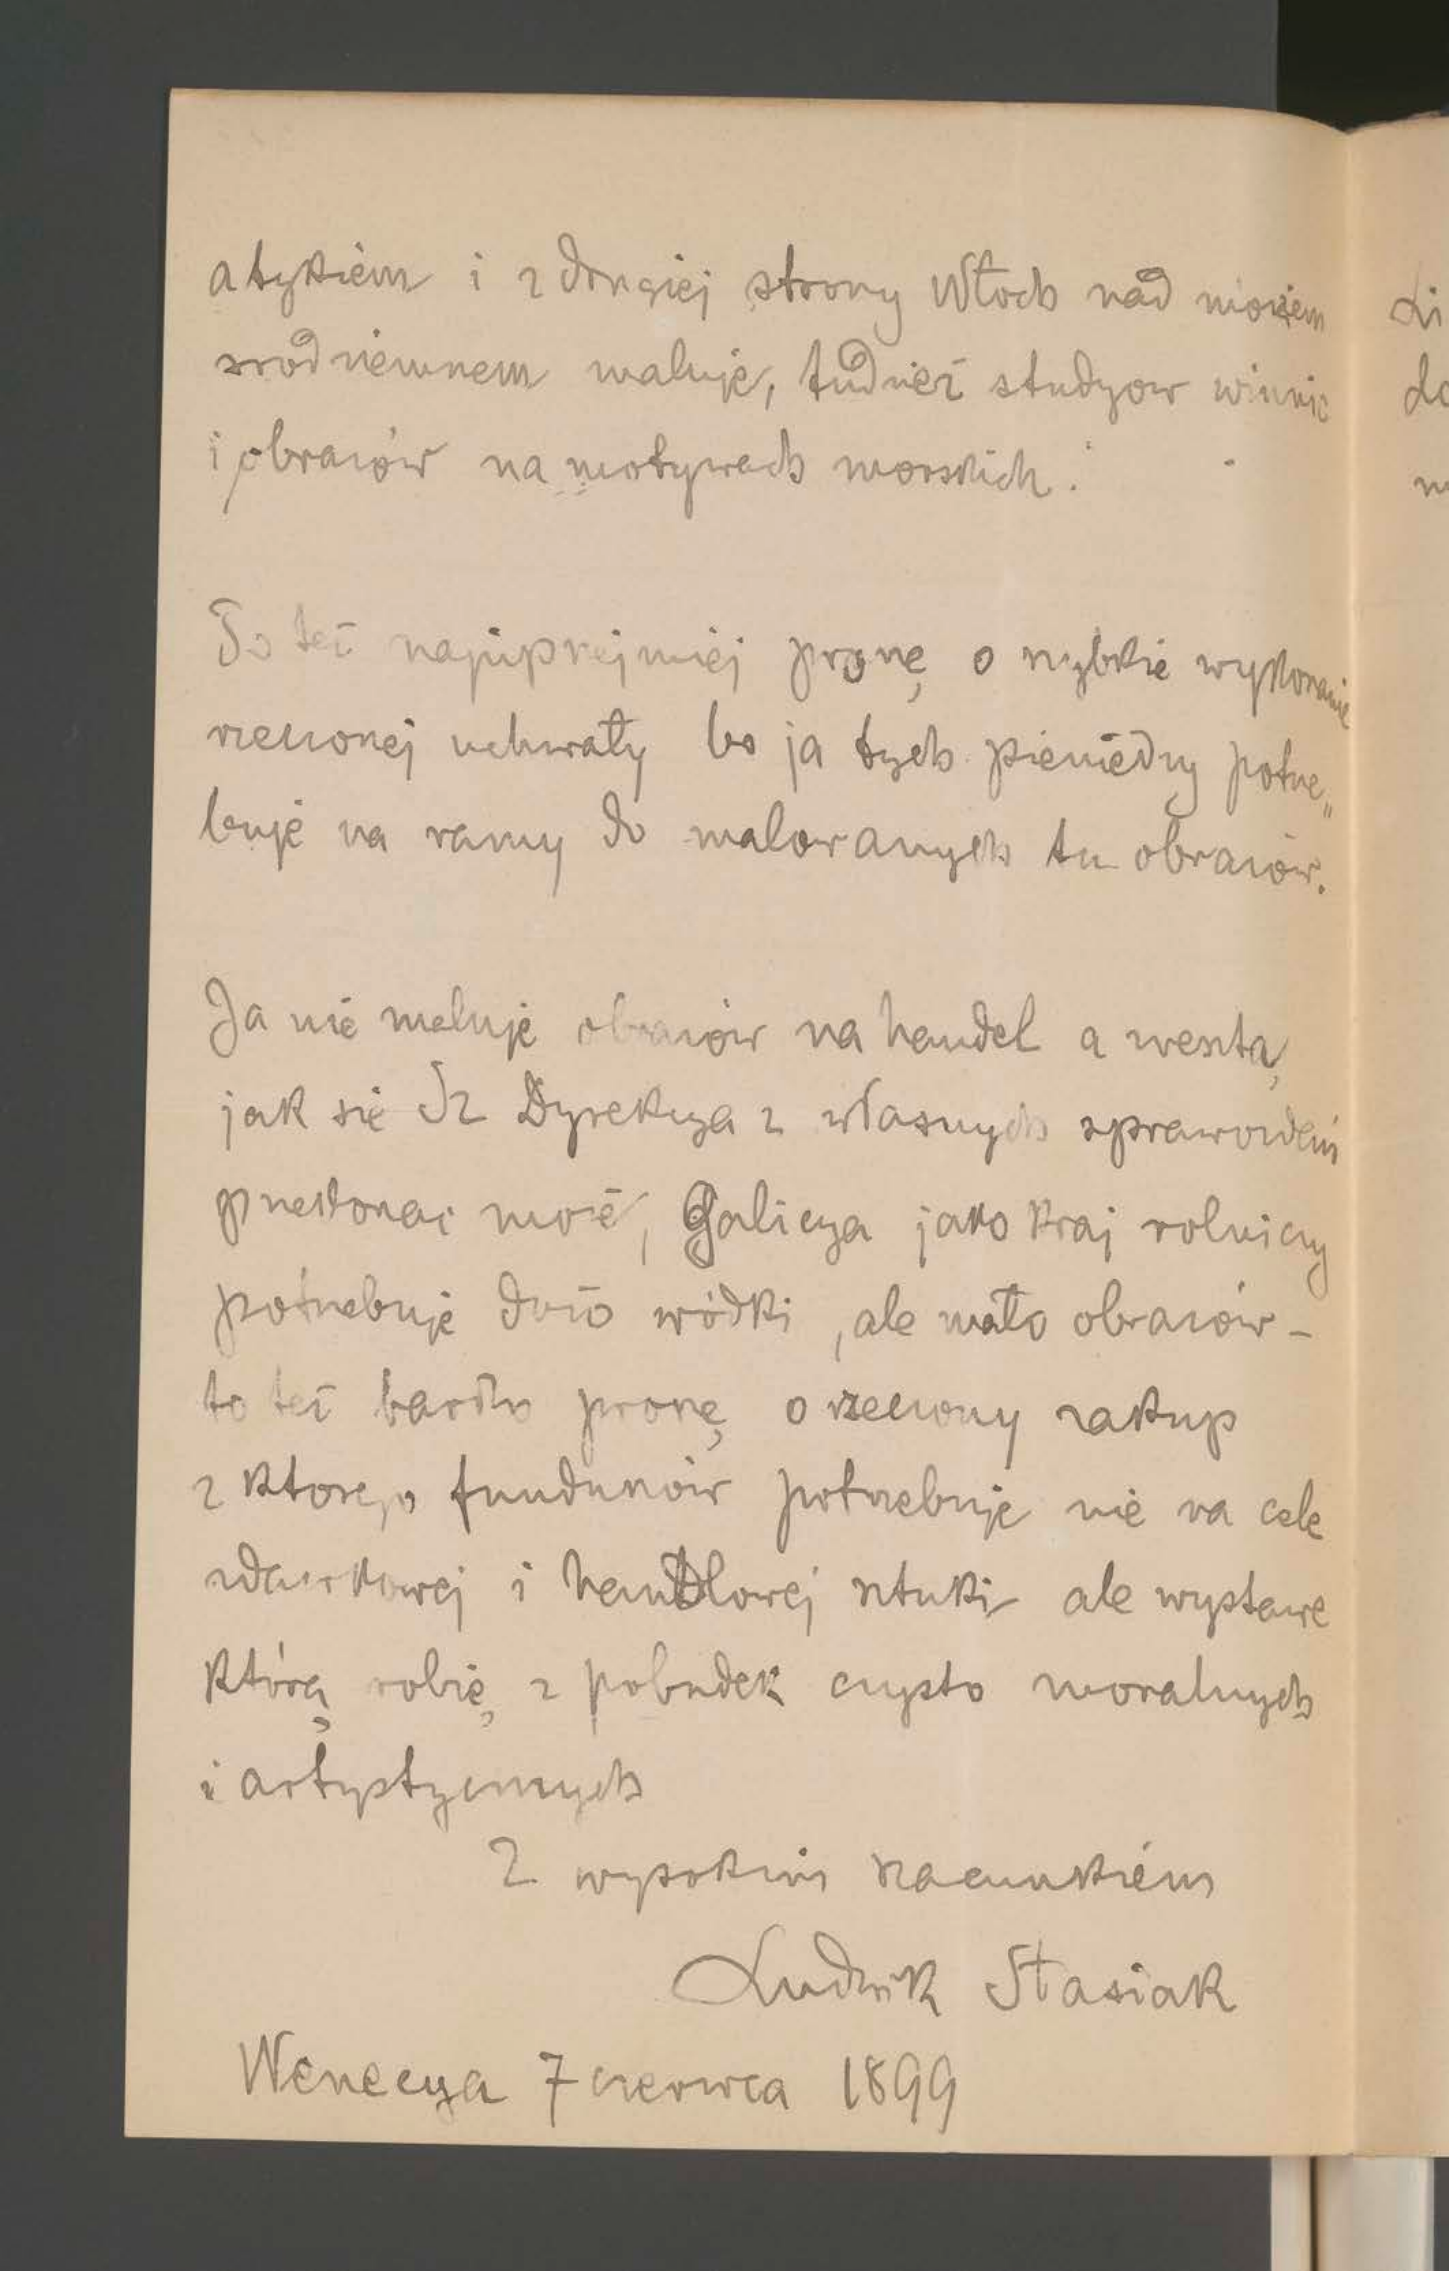 atykiem i z drugiej strony Włoch nad morzem
srodziemnem maluje, tudzież studyow winnic
i obrazów na motywach morskich.
To też najuprzejmiej proszę o szybkie wykonanie
rzeczonej uchwały bo ja tych pieniędzy potrze„
buje na ramy do malowanych tu obrazów.
Ja nie maluje obrazów na handel a zresztą,
jak się Sz Dyrekcya z własnych sprawozdań
przekonać może, Galicya jako kraj rolniczy
potrzebuje dużo wódki, ale mało obrazów –
to też bardzo proszę o rzeczony zakup
z którego funduszów potrzebuje nie na cele
zdawkowej i handlowej sztuki ale wystawe
którą robię z pobudek czysto moralnych
i artystycznych
Z wysokim szacunkiem
Ludwik Stasiak
Wenecya 7 czerwca 1899